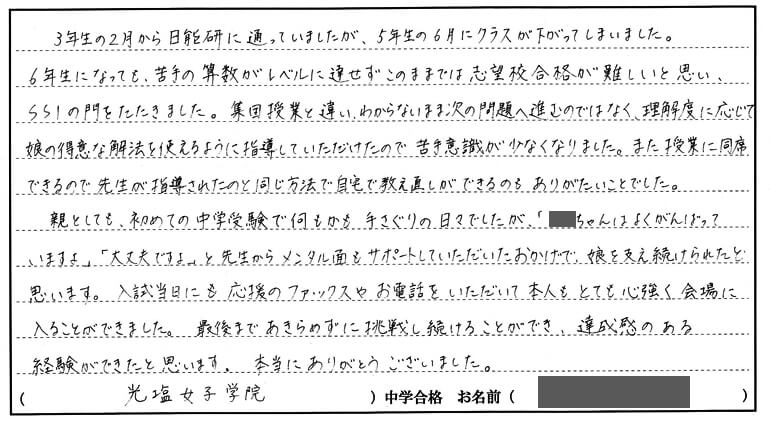 3年生の2月から日能研に通っていましたが、5年生の6月にクラスが下がってしまいました。
6年生になっても、苦手の算数がレベルに達せずこのままでは志望校合格が難しいと思い、
SS1の門をたたきました。集団授業と違い、わからないまま次の問題へ進むのではなく、理解度に応じて
娘の得意な解法を使えるように指導していただけたので苦手意識が少なくなりました。また授業に同席
できるので先生が指導されたのと同じ方法で自宅で教え直しができるのもありがたいことでした。
親としても、初めての中学受験で何もかも手さぐりの日々でしたが、「 ちゃんはよくがんばって
いますよ」「大丈夫ですよ」と先生からメンタル面もサポートしていただいたおかげで、娘を支え続けられたと
思います。入試当日にも応援のファックスやお電話をいただいて本人もとても心強く会場に
入ることができました。最後まであきらめずに挑戦し続けることができ、達成感のある
経験ができたと思います。本当にありがとうございました。
( 光塩女子学院 ) 中学合格 お名前 ( )